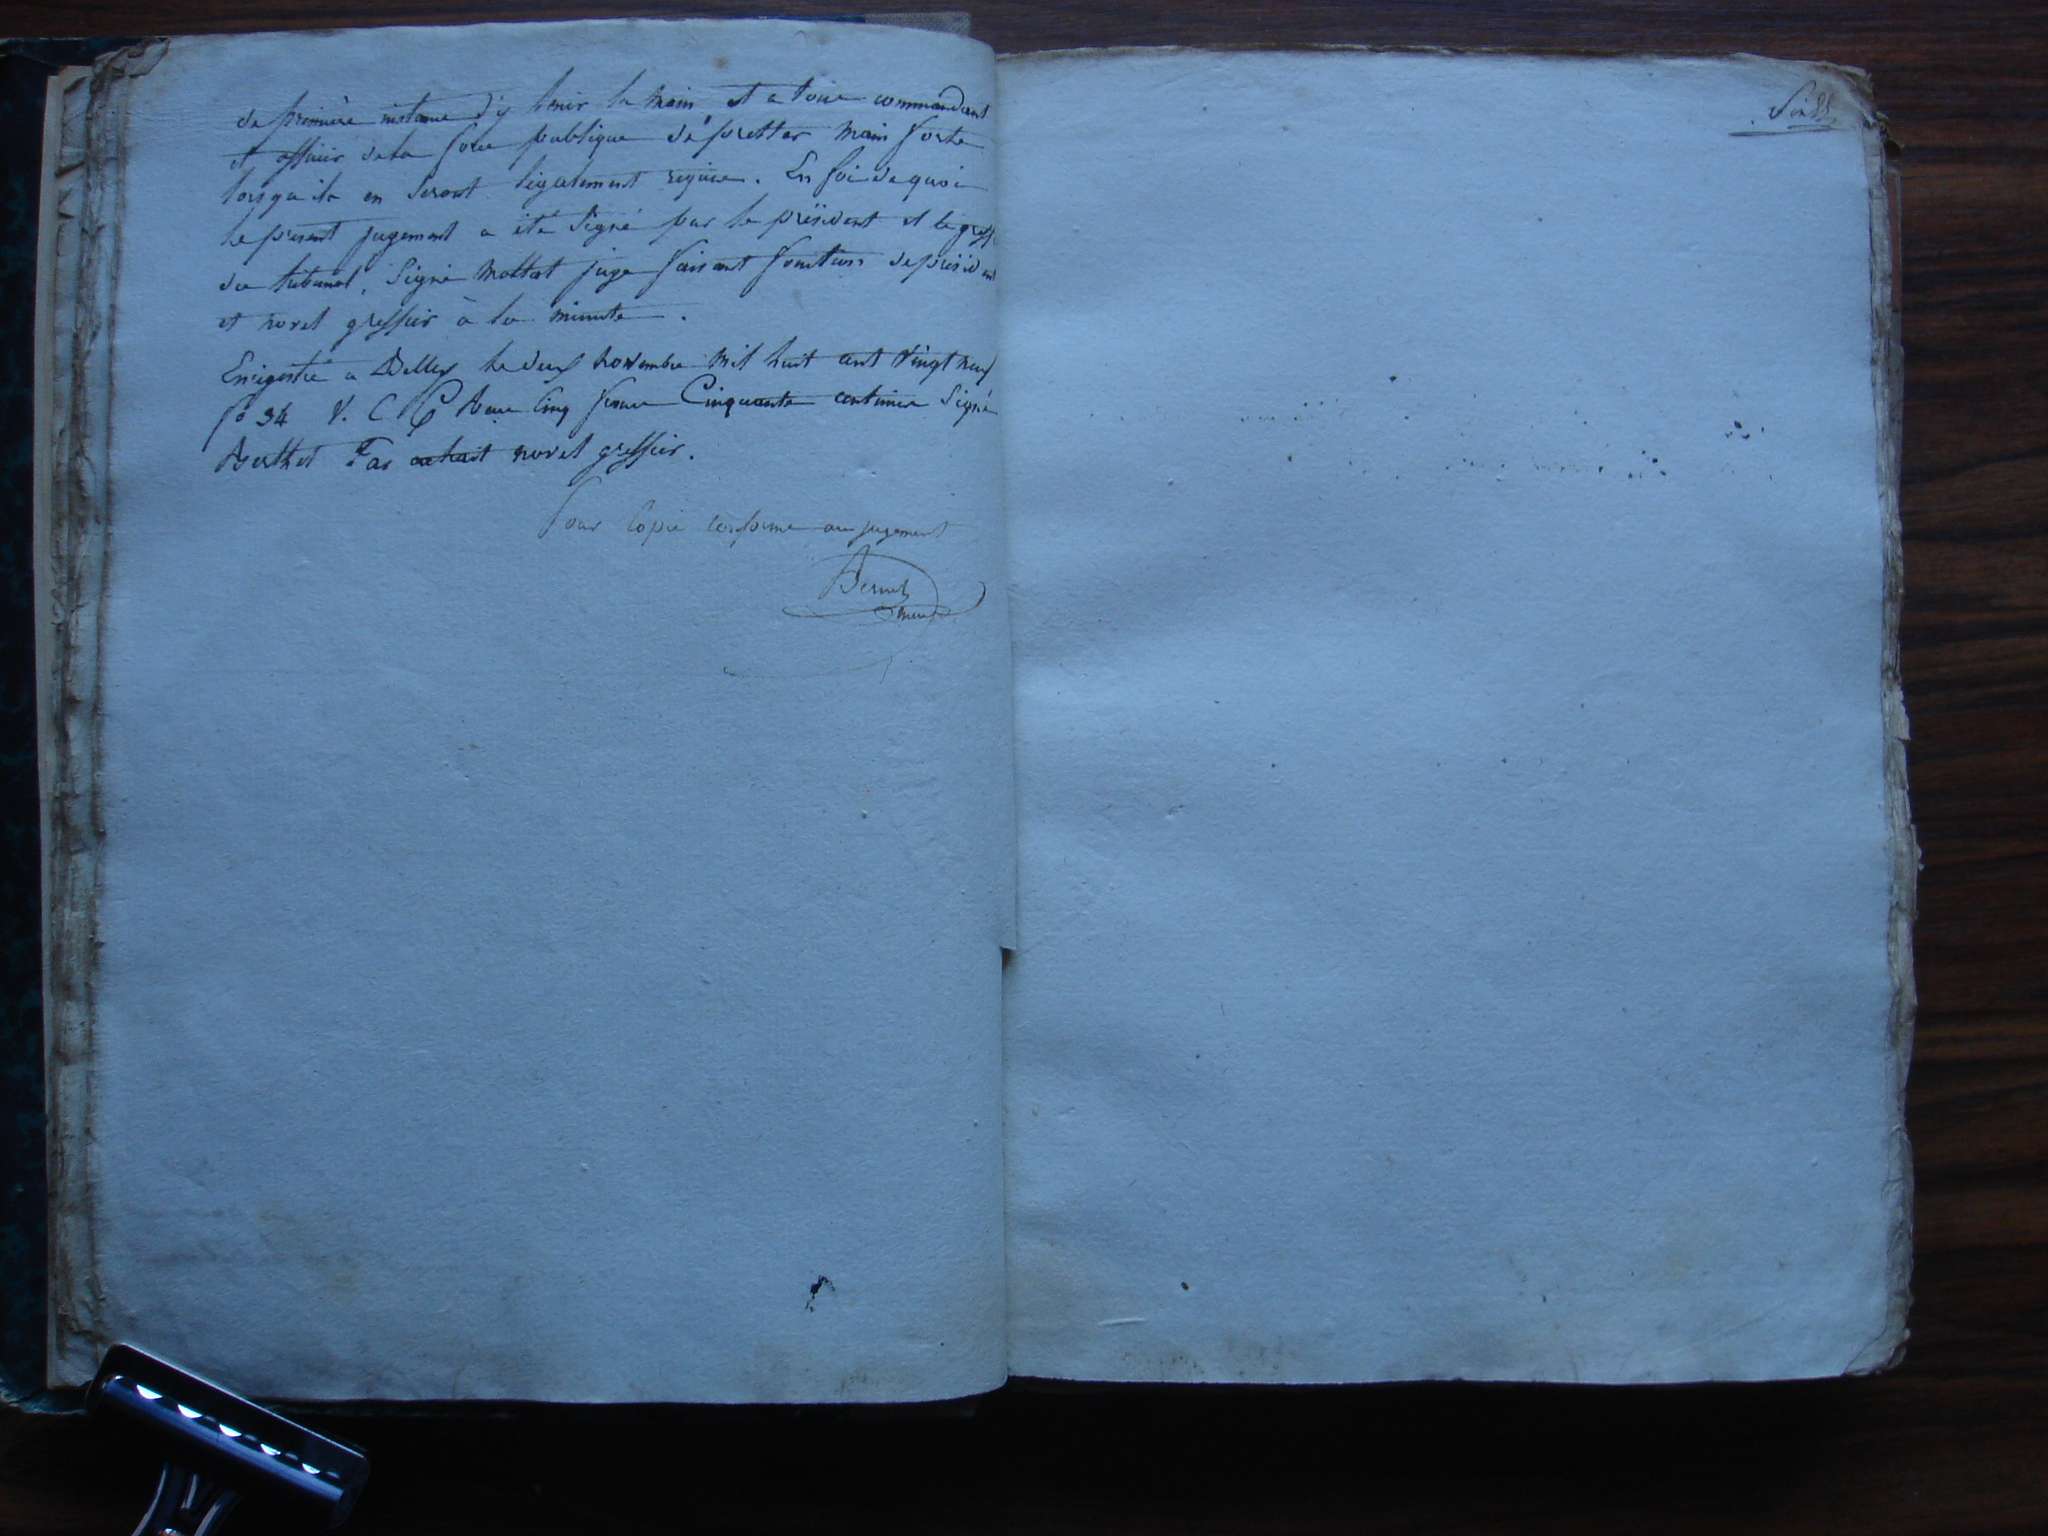 de première instance d'y tenir la main et a tous commandant
et officier de la force publique de pretter main forte
lorsqu'ils en seront légalement requis. En foi de quoi
le present jugement a été Signé par le président et le greff
du tribunal, Signé Mottet juge faisant fonction de présiden
et novel greffier à la minute.
Enregistré a Belley le deux novembre mil huit cent vingt neuf
fo 34 V. C. 6 Reçu Cinq franc Cinquante centimes Signé
Berthet Par extrait novel greffier.
Pour Copie conforme au jugement